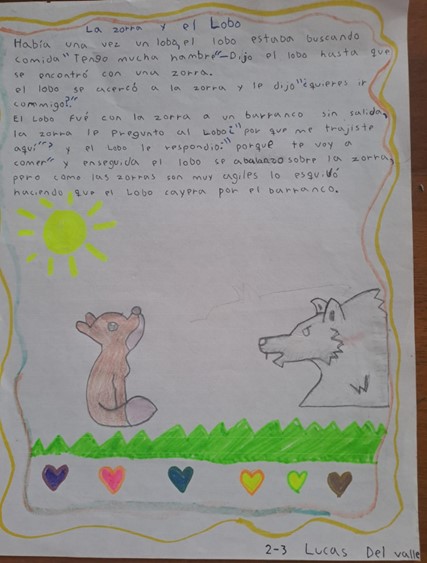 La zorra y el Lobo
Había una vez un lobo, el lobo estaba buscando
comida "Tengo mucha hambre" -Dijo el lobo hasta que
se encontró con una zorra.
el lobo se acercó a la zorra y le dijo "¿quieres ir
conmigo?"
El Lobo fué con la zorra a un barranco sin salida,
la zorra le pregunto al Lobo: "¿por que me trajiste
aquí"? y el Lobo le respondio: "porque te voy a
comer" y enseguida el lobo se abalanzo sobre la zorra,
pero como las zorras son muy agiles lo esquivó
haciendo que el Lobo cayera por el barranco.
2-3 Lucas Del valle